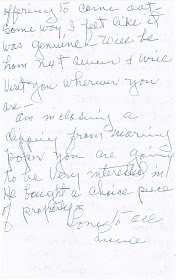 offering to come out -
some way, I felt like it
was genuine! - Will be
home next summer & will
visit you wherever you
are -
am inclosing a
clipping from morning
paper you are going
to be very interested in!
He bought a choice piece
of property -
Love to all